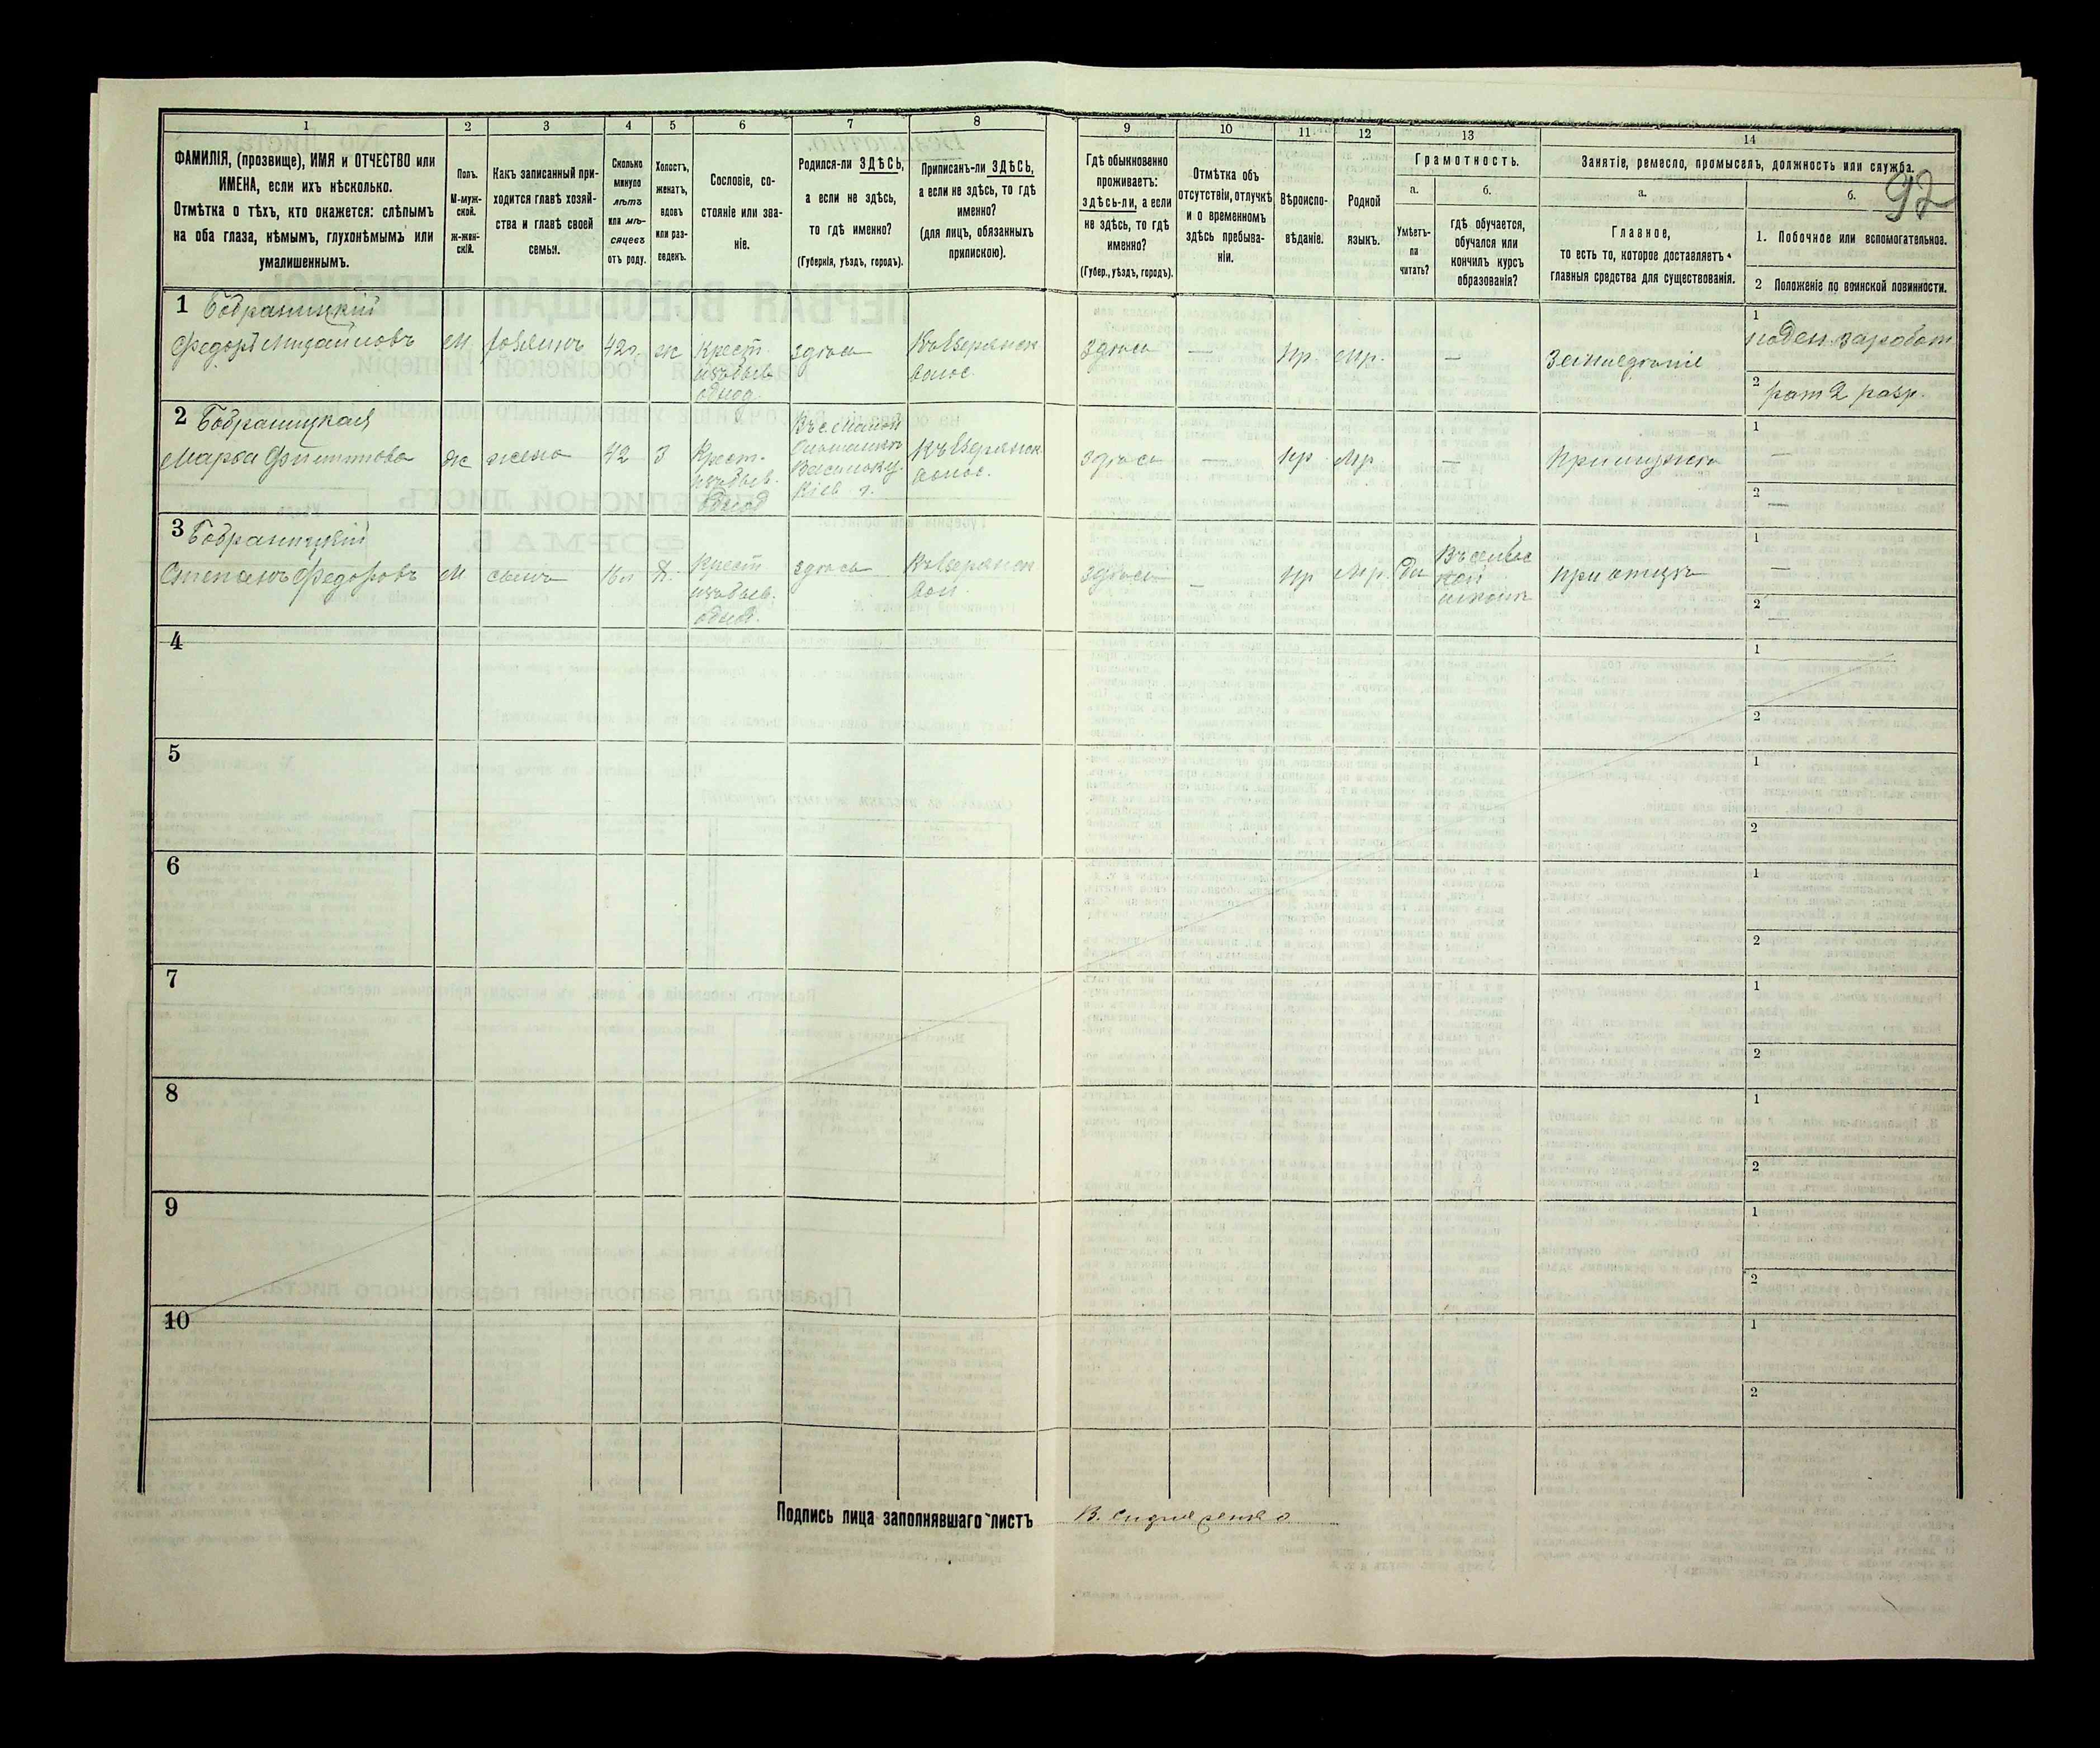 1 2 3 4 5 6 7 8 9 10 11 12 13 14
ФАМИЛІЯ, (прозвище), ИМЯ и ОТЧЕСТВО или
ИМЕНА, если ихъ нѣсколько.
Отмѣтка о тѣхъ, кто окажется: слѣпымъ
на оба глаза, нѣмымъ, глухонѣмымъ или
умалишеннымъ.
Полъ.
М-муж-
ской.
ж-жен-
скій.
Какъ записанный при-
ходится главѣ хозяй-
ства и главѣ своей
семьи.
Сколько
минуло
лѣтъ
или мѣ-
сяцевъ
отъ роду.
Холостъ,
женатъ,
вдовъ
или раз-
веденъ.
Сословіе, со-
стояніе или зва-
ніе.
Родился-ли ЗДѢСЬ,
а если не здѣсь,
то гдѣ именно?
(Губернія, уѣздъ, городъ).
Приписанъ-ли ЗДѢСЬ,
а если не здѣсь, то гдѣ
именно?
(для лицъ, обязанныхъ
припискою).
Гдѣ обыкновенно
проживаетъ:
здѣсь-ли, а если
не здѣсь, то гдѣ
именно?
(Губер., уѣздъ, городъ).
Отмѣтка объ
отсутствіи, отлучкѣ
и о временномъ
здѣсь пребыва-
ніи.
Вѣроиспо-
вѣданіе.
Родной
языкъ.
Грамотность.
а.
Умѣетъ-
ли
читать?
б.
гдѣ обучается,
обучался или
кончилъ курсъ
образованія?
Занятіе, ремесло, промыселъ, должность или служба.
а.
Главное,
то есть то, которое доставляетъ
главныя средства для существованія.
б.
92
1. Побочное или вспомогательное.
2 Положеніе по воинской повинности.
1 Бобраницкій
Федоръ Михайловъ
М
хозяинъ
42
ж
Крест
изъ бывш
однод.
здѣсь
волос.
здѣсь
—
Пр.
Мр.
—
Земледѣліе
1
поден. заработ
2
рат 2 разр.
2 Бобраницкая
Марья Филиппова
ж
жена
42
З
Крест.
изъ бывш.
однод
Кіев г.
волос.
здѣсь
—
Пр
Мр
—
При мужѣ
1 —
2 —
3 Бобраницкій
Степанъ Федоровъ
М
сынъ
16
Х.
Крест
изъ бывш.
однод.
здѣсь
вол.
здѣсь
—
Пр
Мр.
Да
Въ сельс
кой
школѣ
при отцѣ
1 —
2 —
4
1
2
5
1
2
6
1
2
7
1
2
8
1
2
9
1
2
10
1
2
Подпись лица заполнявшаго листъ